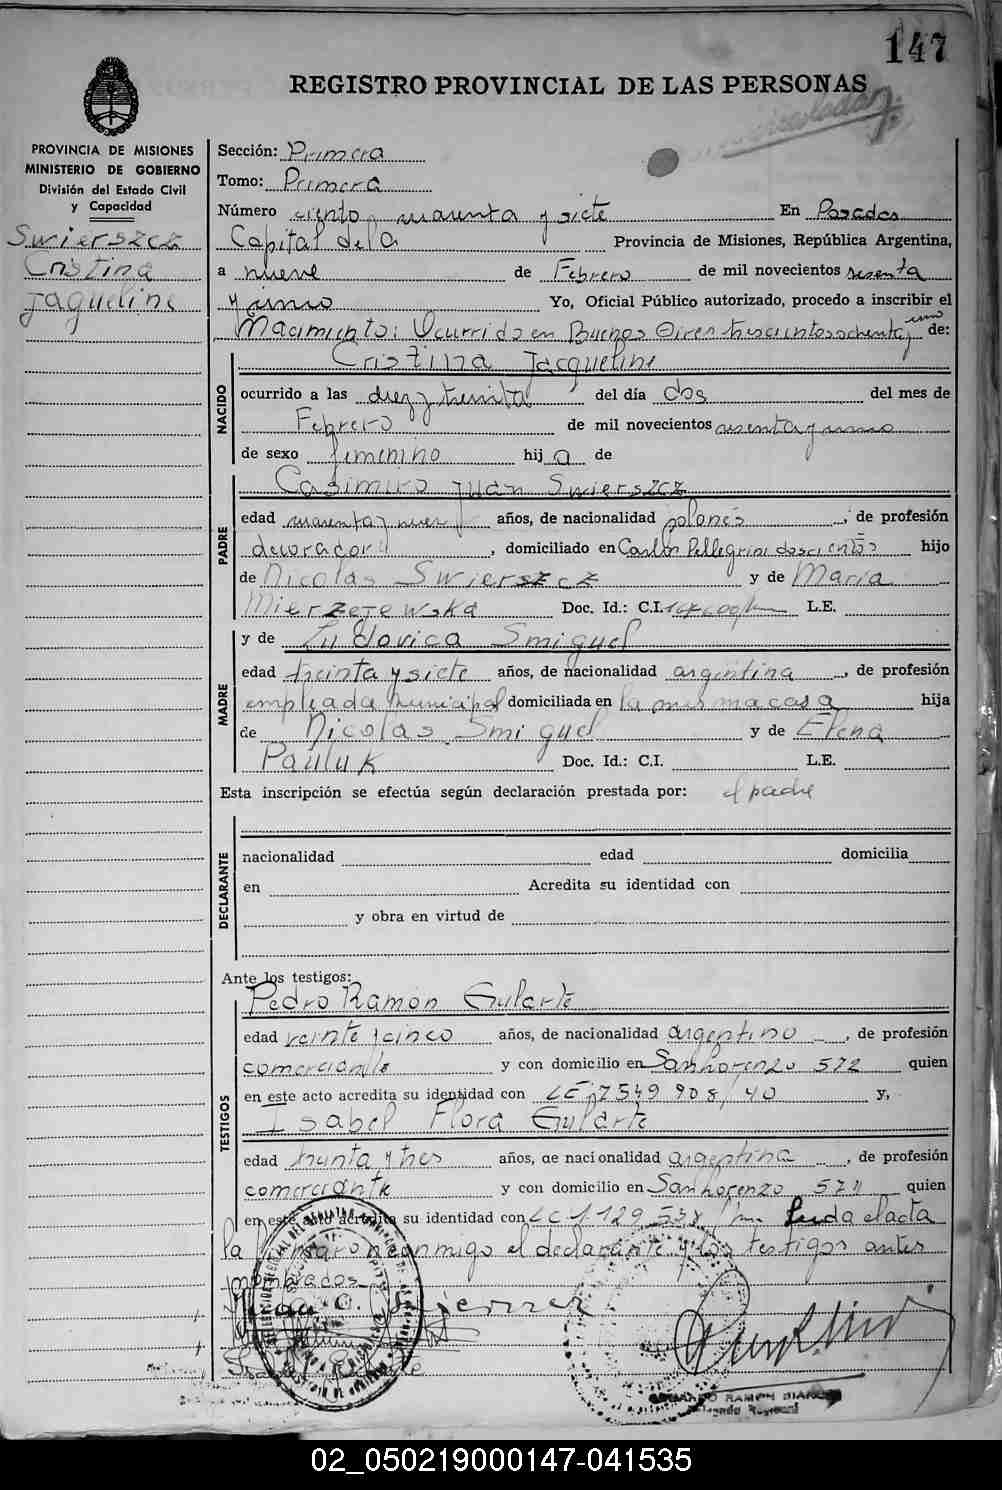 147
REGISTRO PROVINCIAL DE LAS PERSONAS
PROVINCIA DE MISIONES
MINISTERIO DE GOBIERNO
División del Estado Civil
y Capacidad
Swierszcz
Cristina
Jaqueline
Sección: Primera
Tomo: Primera
Número ciento cuarenta y siete En Posadas
Capital de la Provincia de Misiones, República Argentina,
a nueve de Febrero de mil novecientos sesenta
y uno Yo, Oficial Público autorizado, procedo a inscribir el
Nacimiento: Ocurrido en Buenos Aires trescientos ochenta y uno de:
NACIDO
Cristina Jacqueline
ocurrido a las diez y treinta del día dos del mes de
Febrero de mil novecientos sesenta y uno
de sexo femenino hija de
PADRE
Casimiro Juan Swierszcz
edad cuarenta y nueve años, de nacionalidad polonés, de profesión
decorador, domiciliado en Carlos Pellegrini doscientos hijo
de Nicolás Swierszcz y de María
Mierzejewska Doc. Id.: C.I. L.E.
MADRE
y de Ludovica Smiguel
edad treinta y siete años, de nacionalidad argentina, de profesión
empleada municipal domiciliada en la misma casa hija
de Nicolas Smiguel y de Elena
Pauluk Doc. Id.: C.I. L.E.
Esta inscripción se efectúa según declaración prestada por: el padre
DECLARANTE
nacionalidad edad domicilia
en Acredita su identidad con
y obra en virtud de
Ante los testigos:
TESTIGOS
Pedro Ramón Gularte
edad veinte y cinco años, de nacionalidad argentino, de profesión
comerciante y con domicilio en San Lorenzo 572 quien
en este acto acredita su identidad con LE 7549 908/40 y,
Isabel Flora Gularte
edad treinta y tres años, de nacionalidad argentina, de profesión
comerciante y con domicilio en San Lorenzo 571 quien
en este acto acredita su identidad con LC 1.129.538 Leida el acta
la firmaron conmigo el declarante y los testigos antes
nombrados
RAMON
Delegado Regional
02_050219000147-041535